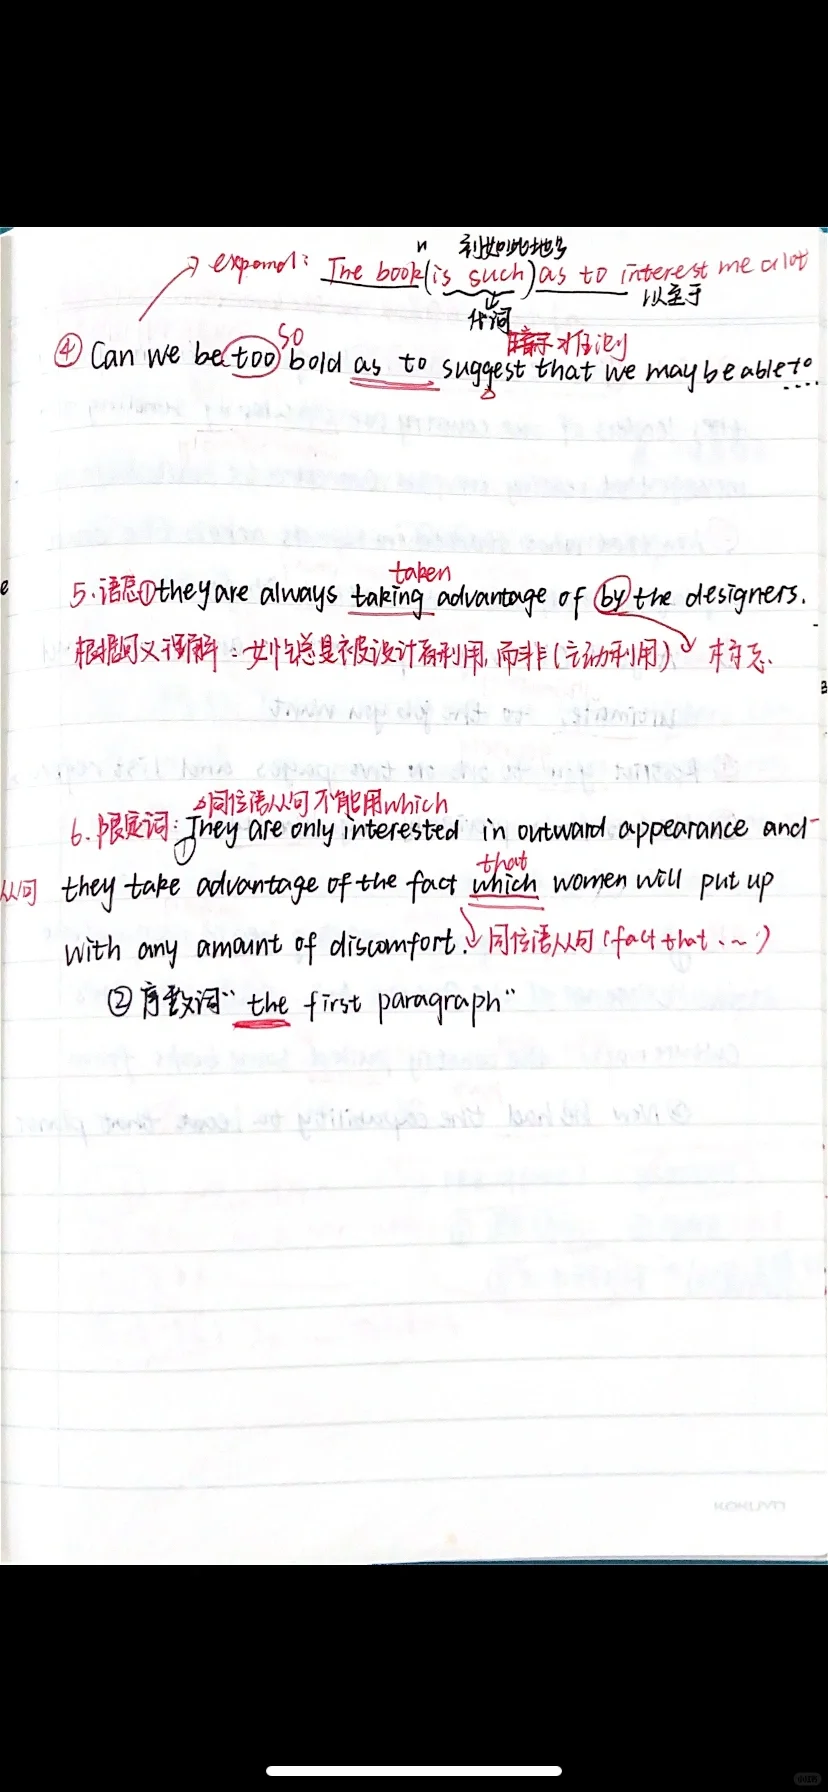 n 到如此地步
→ expand: The book (is such) as to interest me a lot
代词 以至于
so 暗示 对住识别
④ Can we be too bold as to suggest that we may be able to ....
taken
5.语态①they are always taking advantage of by the designers.
根据词义理解：女性总是被设计者利用,而非(主动利用) 标志.
同位语从句不能用which
6.限定词: ① They are only interested in outward appearance and
that
从句 they take advantage of the fact which women will put up
with any amount of discomfort. 同位语从句(fact that . ~ )
② 序数词 "the first paragraph"
KOKUYO